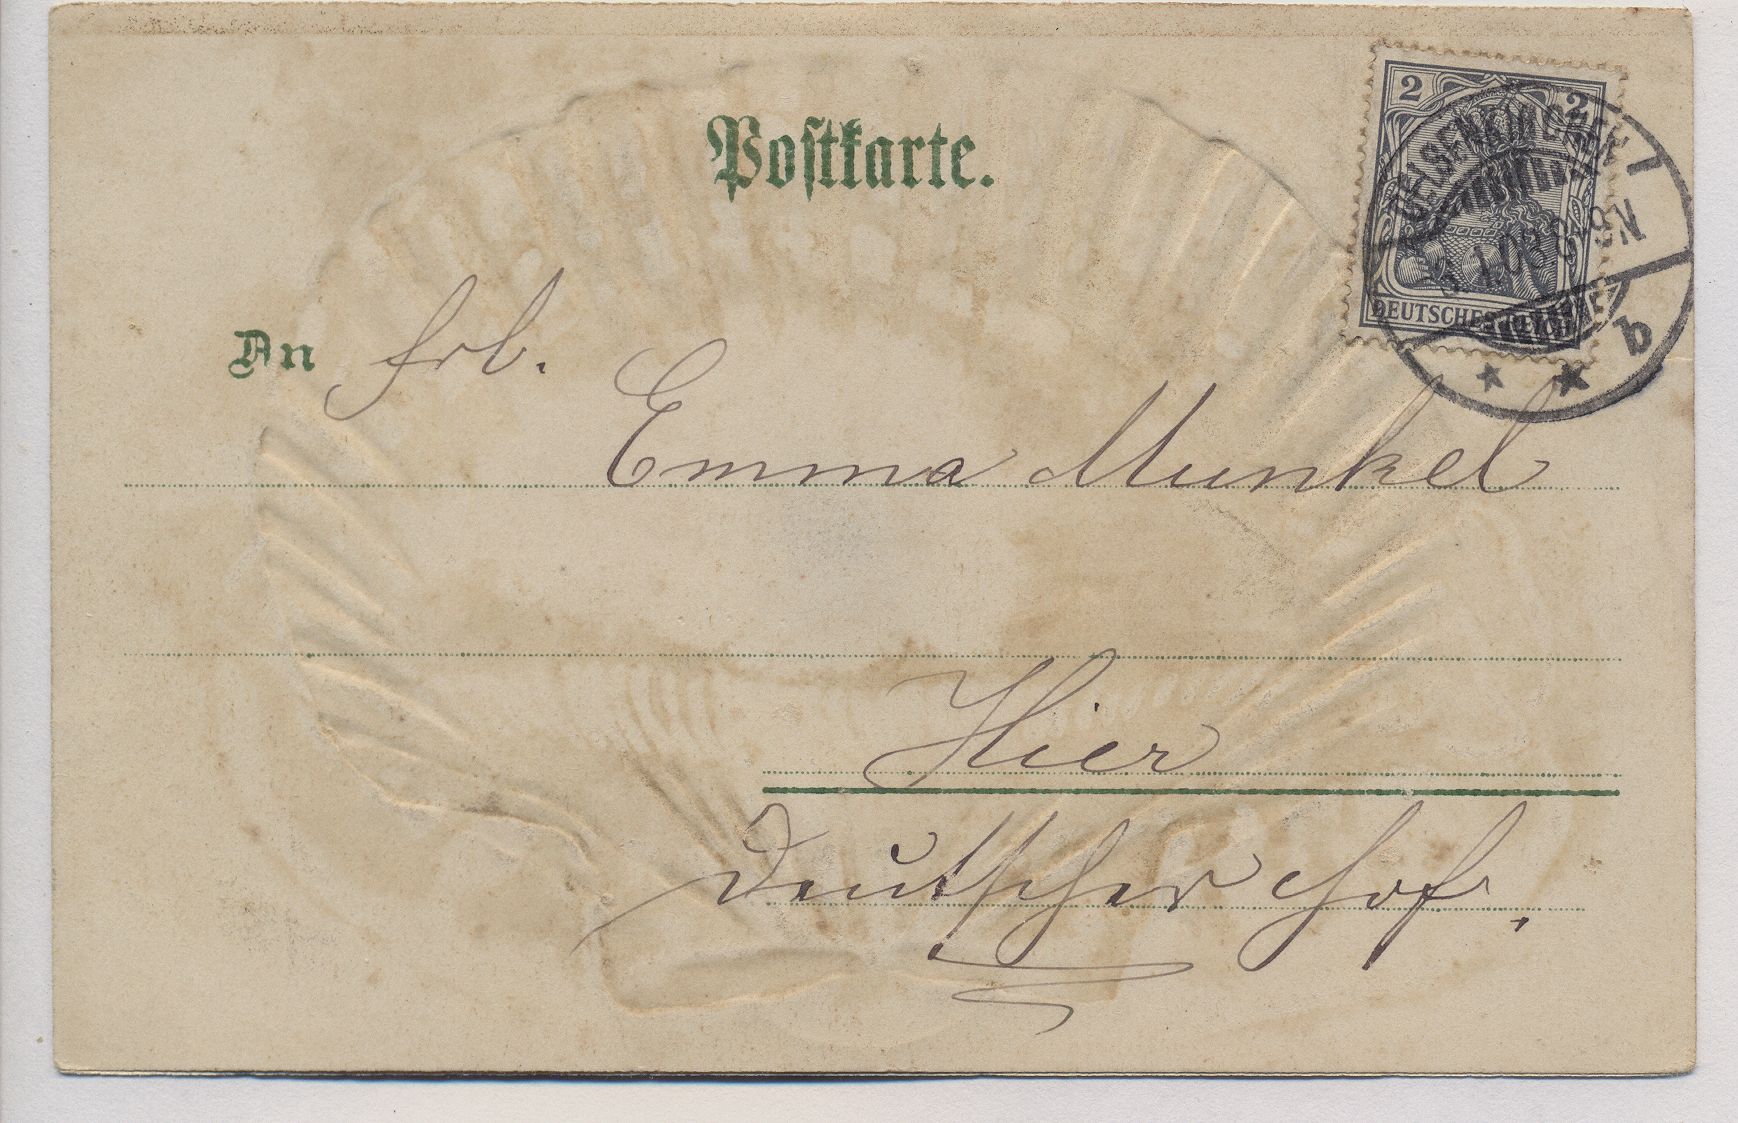 Postkarte.
2 2
GELSENKIRCHEN
1.03 8-9N
* * b
DEUTSCHES REICH
An Frl.
Emma Munkel
Hier
Deutscher Hof.